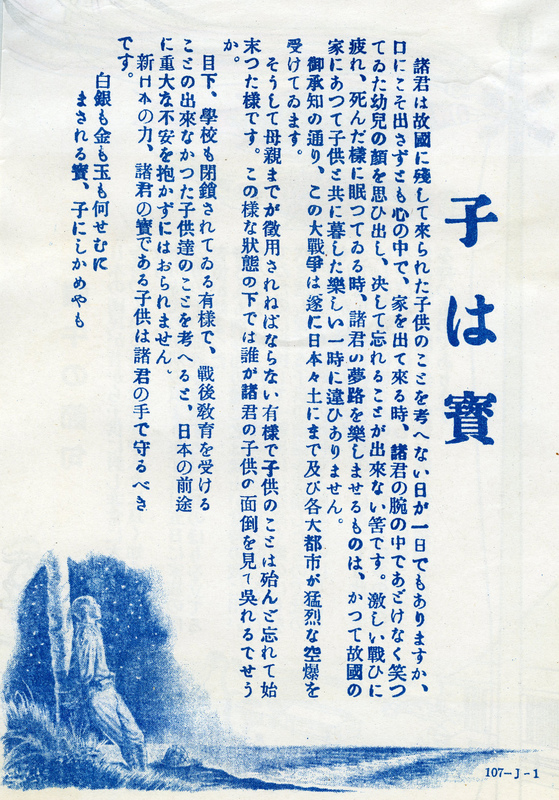 子は寶
諸君は故國に殘して來られた子供のことを考へない日が一日でもありますか、
口にこそ出さずとも心の中で、家を出て來る時、諸君の腕の中であどけなく笑つ
てゐた幼兒の顏を思ひ出し、決して忘れることが出來ない筈です。激しい戰ひに
疲れ、死んだ樣に眠つてゐる時、諸君の夢路を樂しませるものは、かつて故國の
家にあつて子供と共に暮した樂しい一時に違ひありません。
御承知の通り、この大戰爭は遂に日本々土にまで及び各大都市が猛烈な空爆を
受けてゐます。
そうして母親までが徵用されねばならない有樣で子供のことは殆んど忘れて始
末つた樣です。この樣な狀態の下では誰が諸君の子供の面倒を見て吳れるでせう
か。
目下、學校も閉鎖されてゐる有樣で、戰後敎育を受ける
ことの出來なかつた子供達のことを考へると、日本の前途
に重大な不安を抱かずにはおられません。
新日本の力、諸君の寶である子供は諸君の手で守るべき
です。
白銀も金も玉も何せむに
まされる寶、子にしかめやも
107-J-1